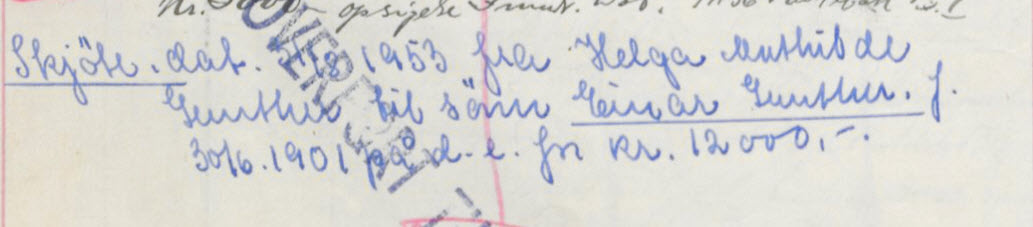 opsigelse
Skjöte. dat. 1953 fra Helga Mathilde
Gunther til sönn Einar Gunther. f.
30/6.1901 på d. e. for kr. 12000,-.
OVERFØRT